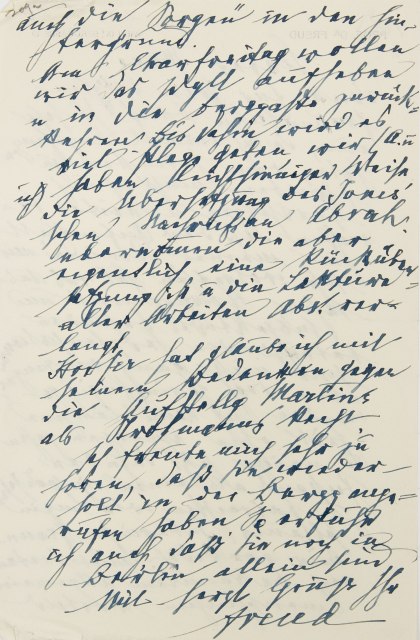 auch die Sorgen" in den Hin-
tergrund.
Am Charfreitag wollen
wir das Idyll aufheben
u in die Berggasse zurück-
kehren. Bis dahin wird es
viel Plage geben, wir (A. u
ich) haben leichtsinniger Weise
die Übersetzung des Jones-
schen Nachrufs an Abrah.
übernommen die aber
eigentlich eine Rücküber-
setzung ist u die Lektüre
aller Arbeiten Abr. ver-
langt.
hat glaube ich mit
seinem Bedenken gegen
die Aufstellg Martins
als Recht
Ich freute mich sehr zu
hören, daß Sie wieder-
holt in der Bergg ange-
rufen haben u erfuhr
ich auch, daß Sie noch in
Berlin allein sind
Mit herzl Gruß Ihr
Freud